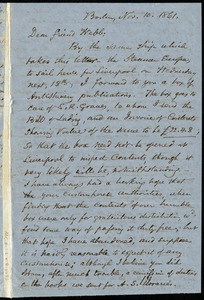 Boston, Nov. 10. 1861.
Dear friend Webb,
By the same Ship which
takes this letter, the Steamer Europa,
to sail hence for Liverpool on Wednesday
next, 13th, I forward to you a box of
AntiSlavery publications. The box goes to
care of C. R. Graves, to whom I send the
Bill of Lading and an Invoice of Contents,
showing Value of the same to be £22.4.8;
so that the box need not be opened at
Liverpool to inspect Contents, though it
very likely will be, notwithstanding.
I have always had a lurking hope that
the Customhouse authorities, when
finding that the Contents of our humble
box were only for gratuitous distribution wd.
find some way of passing it duty free; but
that hope I have abandoned, and suppose
it is hardly reasonable to expect of any
Customhouse; although I believe I
after much trouble, a remission of duties
on the books we sent for A. S.